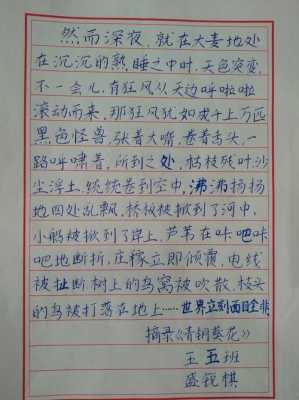 然而深夜,就在大麦地处
在沉沉的熟睡之中时,天色突变,
不一会儿,有狂风从天边呼啦啦
滚动而来,那狂风犹如成千上万匹
黑色怪兽,张着大嘴,卷着舌头,一
路呼啸着,所到之处,枯枝残叶沙
尘浮土,统统卷到空中,沸沸扬扬
地四处乱飘,桥板被掀到了河中,
小船被掀到了岸上,芦苇在咔吧咔
吧地断折,庄稼立即倾覆,电线
被扯断,树上的鸟窝被吹散,枝头
的鸟被打落在地上……世界立刻面目全非
摘录《青铜葵花》
五五班
盛锐棋